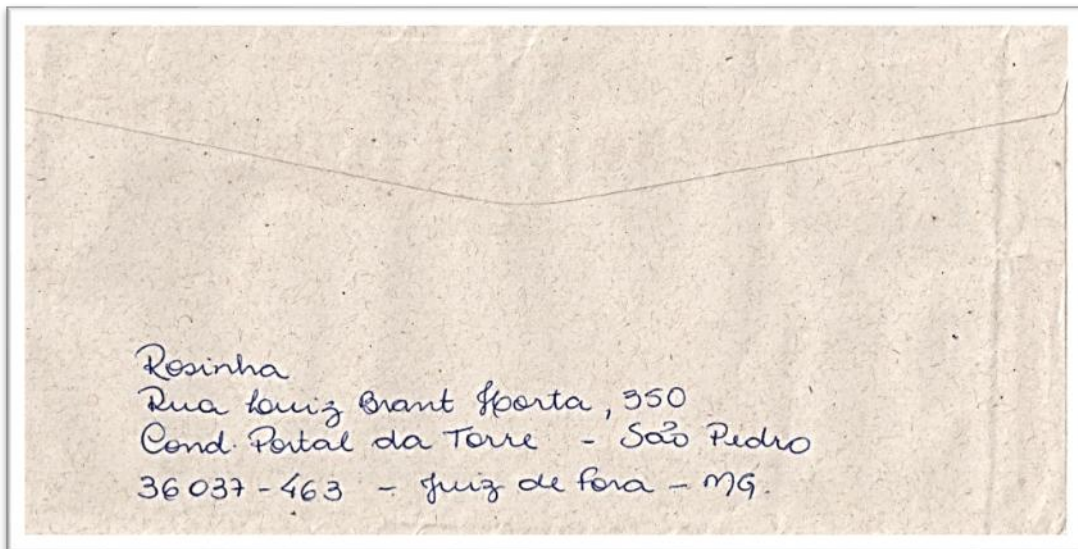 Rosinha
Rua Louiz Brant Horta, 350
Cond. Portal da Torre - São Pedro
36037-463 - Juiz de Fora - MG.